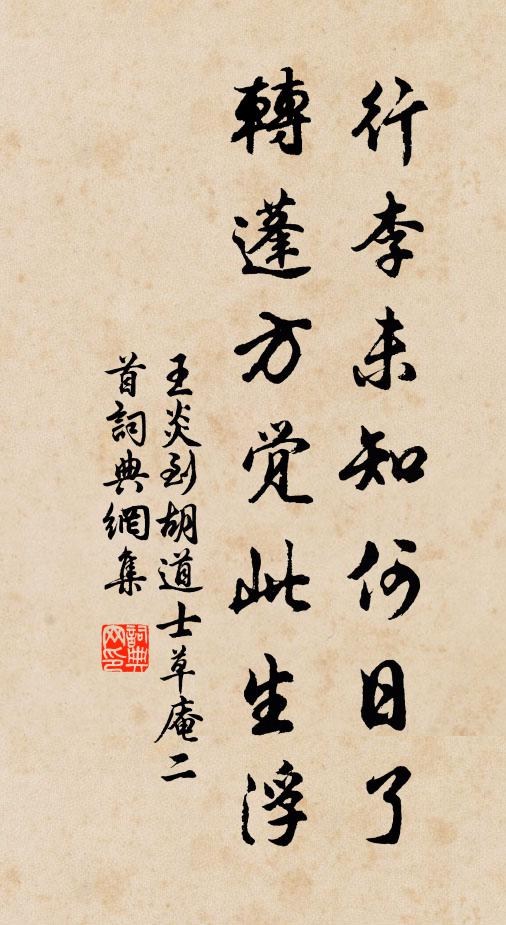 行李未知何日了
轉蓬方覺此生浮
王炎到胡道士草庵二
首詞典網集
詞典
网印